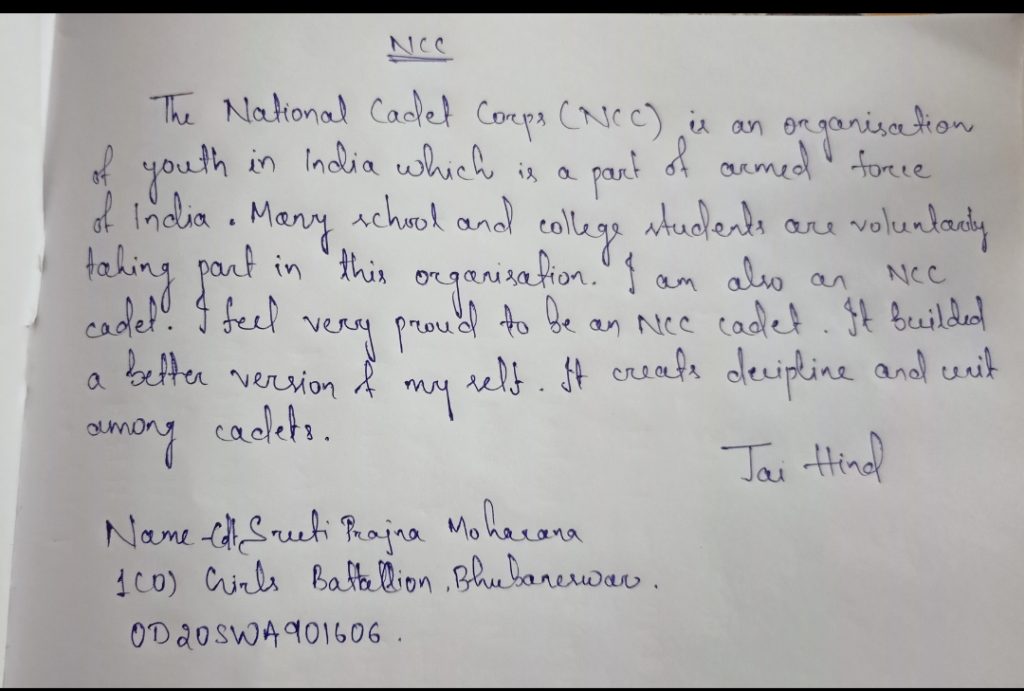 NCC
The National Cadet Corps (NCC) is an organisation
of youth in India which is a part of armed force
of India. Many school and college students are voluntarily
taking part in this organisation. I am also an NCC
cadet. I feel very proud to be an NCC cadet. It builded
a better version of my self. It creats decipline and unit
among cadets.
Jai Hind
Name - Cdt, Sruti Prajna Moharana
1(O) Girls Battallion, Bhubaneswar.
OD20SWA901606.